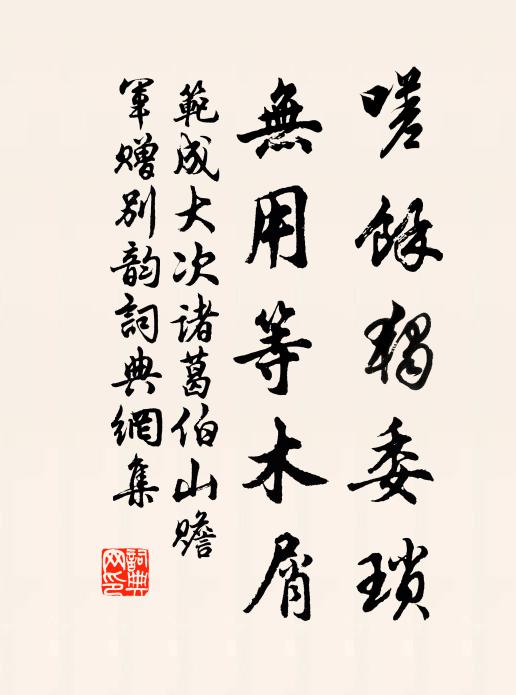 嗟餘獨委瑣
無用等木屑
範成大次诸葛伯山赡
軍贈別韵詞典網集
詞典
网印